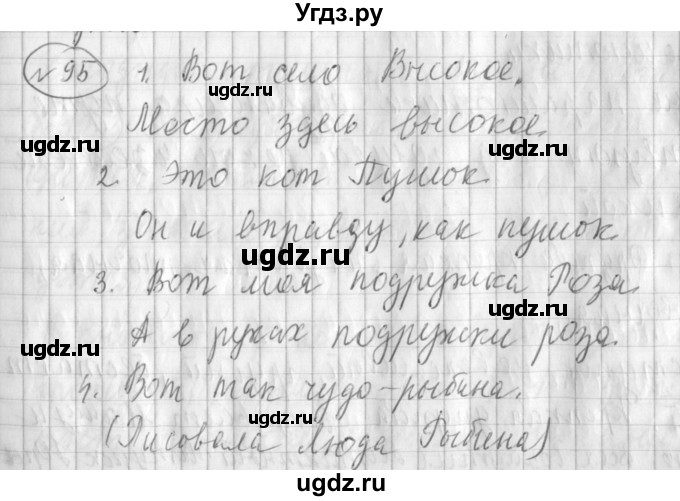 Угдз.ру
№ 95 1. Вот село Высокое.
Место здесь высокое.
2. Это кот Пушок.
Он и вправду, как пушок.
3. Вот моя подружка Роза.
А в руках подружки роза.
4. Вот так чудо-рыбина.
(Рисовала Люда Рыбина)
ugdz.ru
ugdz.ru
ugdz.ru
ugdz.ru
ugdz.ru
ugdz.ru
ugdz.ru
ugdz.ru
ugdz.ru
ugdz.ru
ugdz.ru